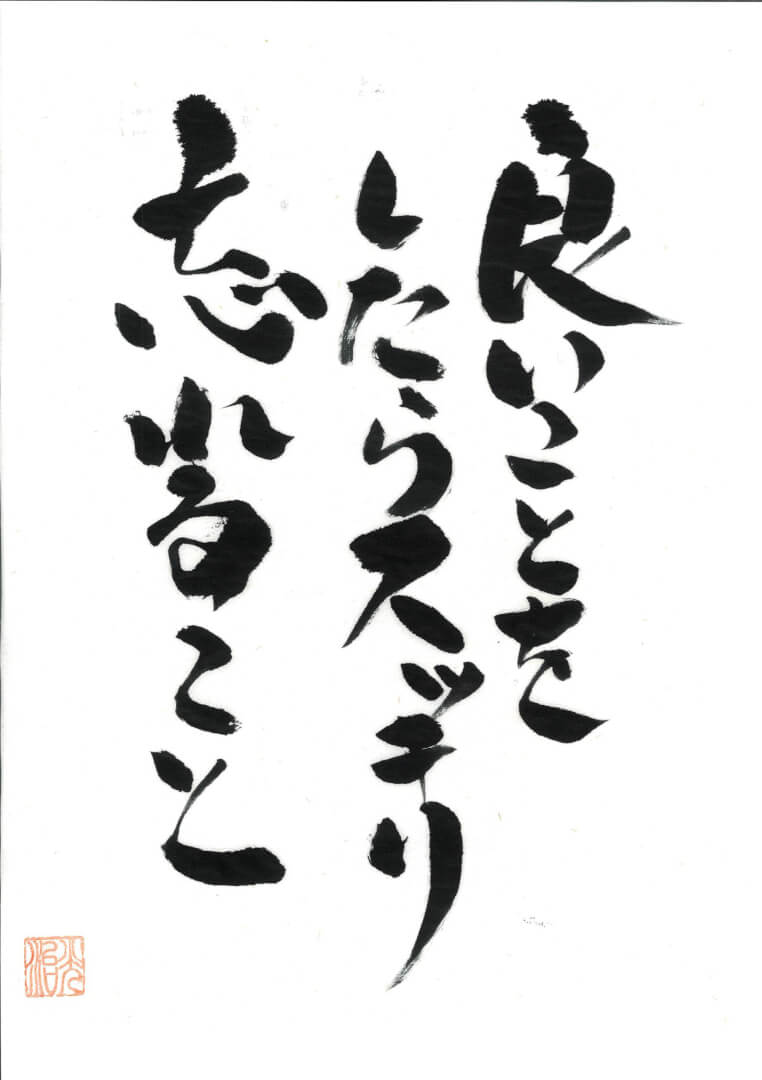 良いことを
したらスッキリ
忘れること